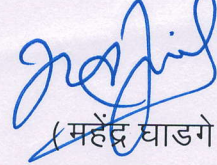 ( महेंद्र घाडगे